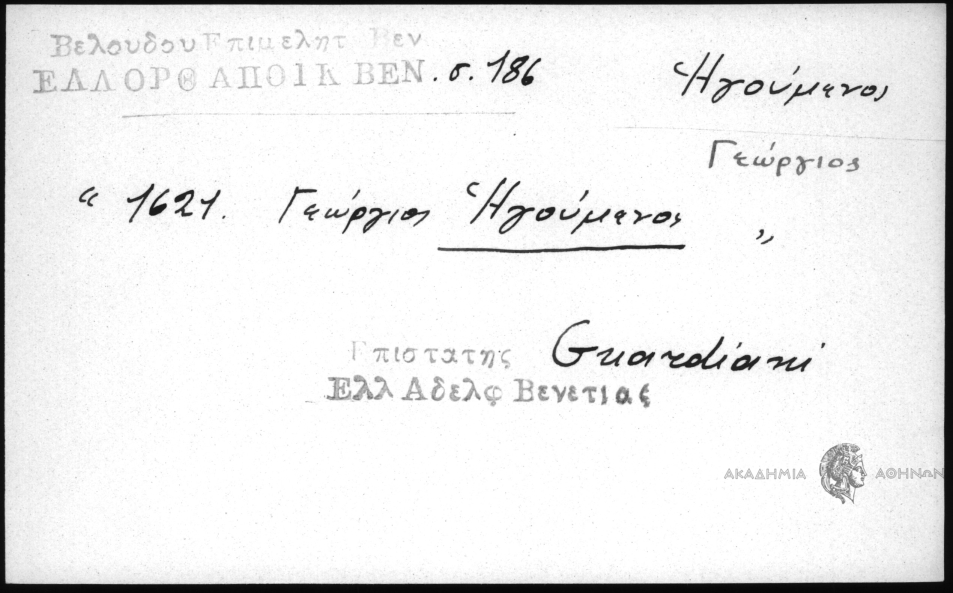 Βελουδου Επιμελητ Βεν
ΕΛΛ ΟΡΘ ΑΠΟΙΚ ΒΕΝ. σ. 186
Ἡγούμενος
Γεώργιος
“ 1621. Γεώργιος Ἡγούμενος „
Επιστατης Guardiani
Ελλ Αδελφ Βενετιας
ΑΚΑΔΗΜΙΑ ΑΘΗΝΩΝ